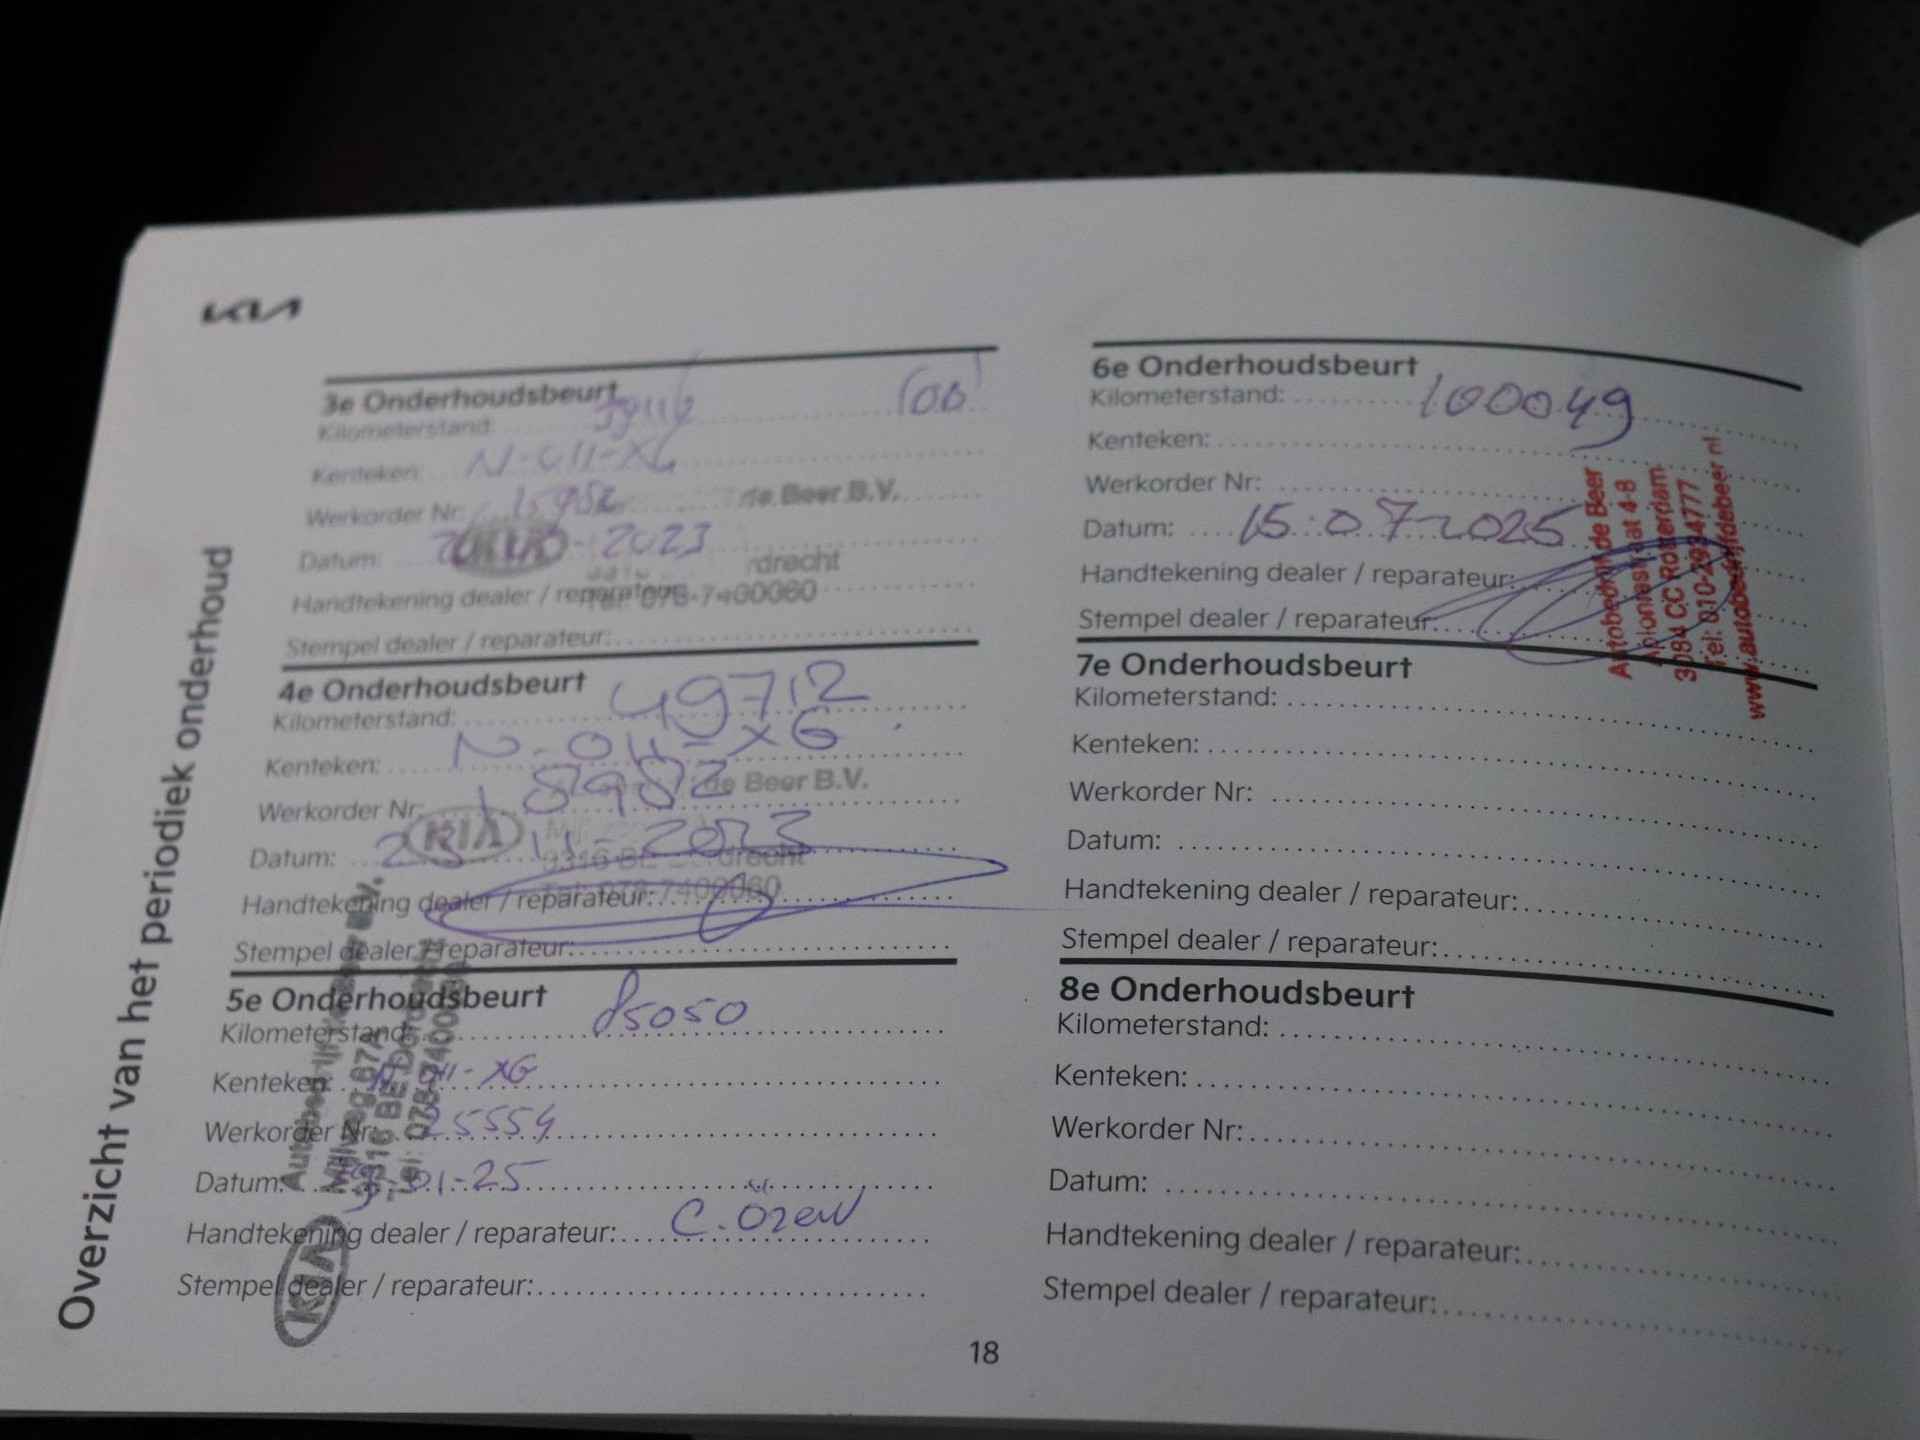 KIA
Overzicht van het periodiek onderhoud
3e Onderhoudsbeurt
Kilometerstand:
Kenteken: N-011-XG
Werkorder Nr:
de Beer B.V.
Datum: 2023
KIA
rdrecht
Handtekening dealer / reparateur:
Tel: 078-7400060
Stempel dealer / reparateur:
4e Onderhoudsbeurt
Kilometerstand: 49712
Kenteken: N-011-XG
Werkorder Nr: 18982
de Beer B.V.
KIA
Datum: 11-2023
3316 BE Dordrecht
Handtekening dealer / reparateur:
Tel: 078-7400060
Stempel dealer / reparateur:
5e Onderhoudsbeurt
Kilometerstand: 85050
Kenteken: N-011-XG
Werkorder Nr: 25554
Datum: 01-25
Handtekening dealer / reparateur: C. Özen
Stempel dealer / reparateur:
KIA
Autobedrijf de Beer B.V.
3316 BE Dordrecht
Tel: 078-7400060
6e Onderhoudsbeurt
Kilometerstand: 100049
Kenteken:
Werkorder Nr:
Datum: 15-07-2025
Handtekening dealer / reparateur:
Stempel dealer / reparateur:
Autobedrijf de Beer
Aploniastraat 4-8
3084 CC Rotterdam
Tel: 010-2934777
www.autobedrijfdebeer.nl
7e Onderhoudsbeurt
Kilometerstand:
Kenteken:
Werkorder Nr:
Datum:
Handtekening dealer / reparateur:
Stempel dealer / reparateur:
8e Onderhoudsbeurt
Kilometerstand:
Kenteken:
Werkorder Nr:
Datum:
Handtekening dealer / reparateur:
Stempel dealer / reparateur:
18